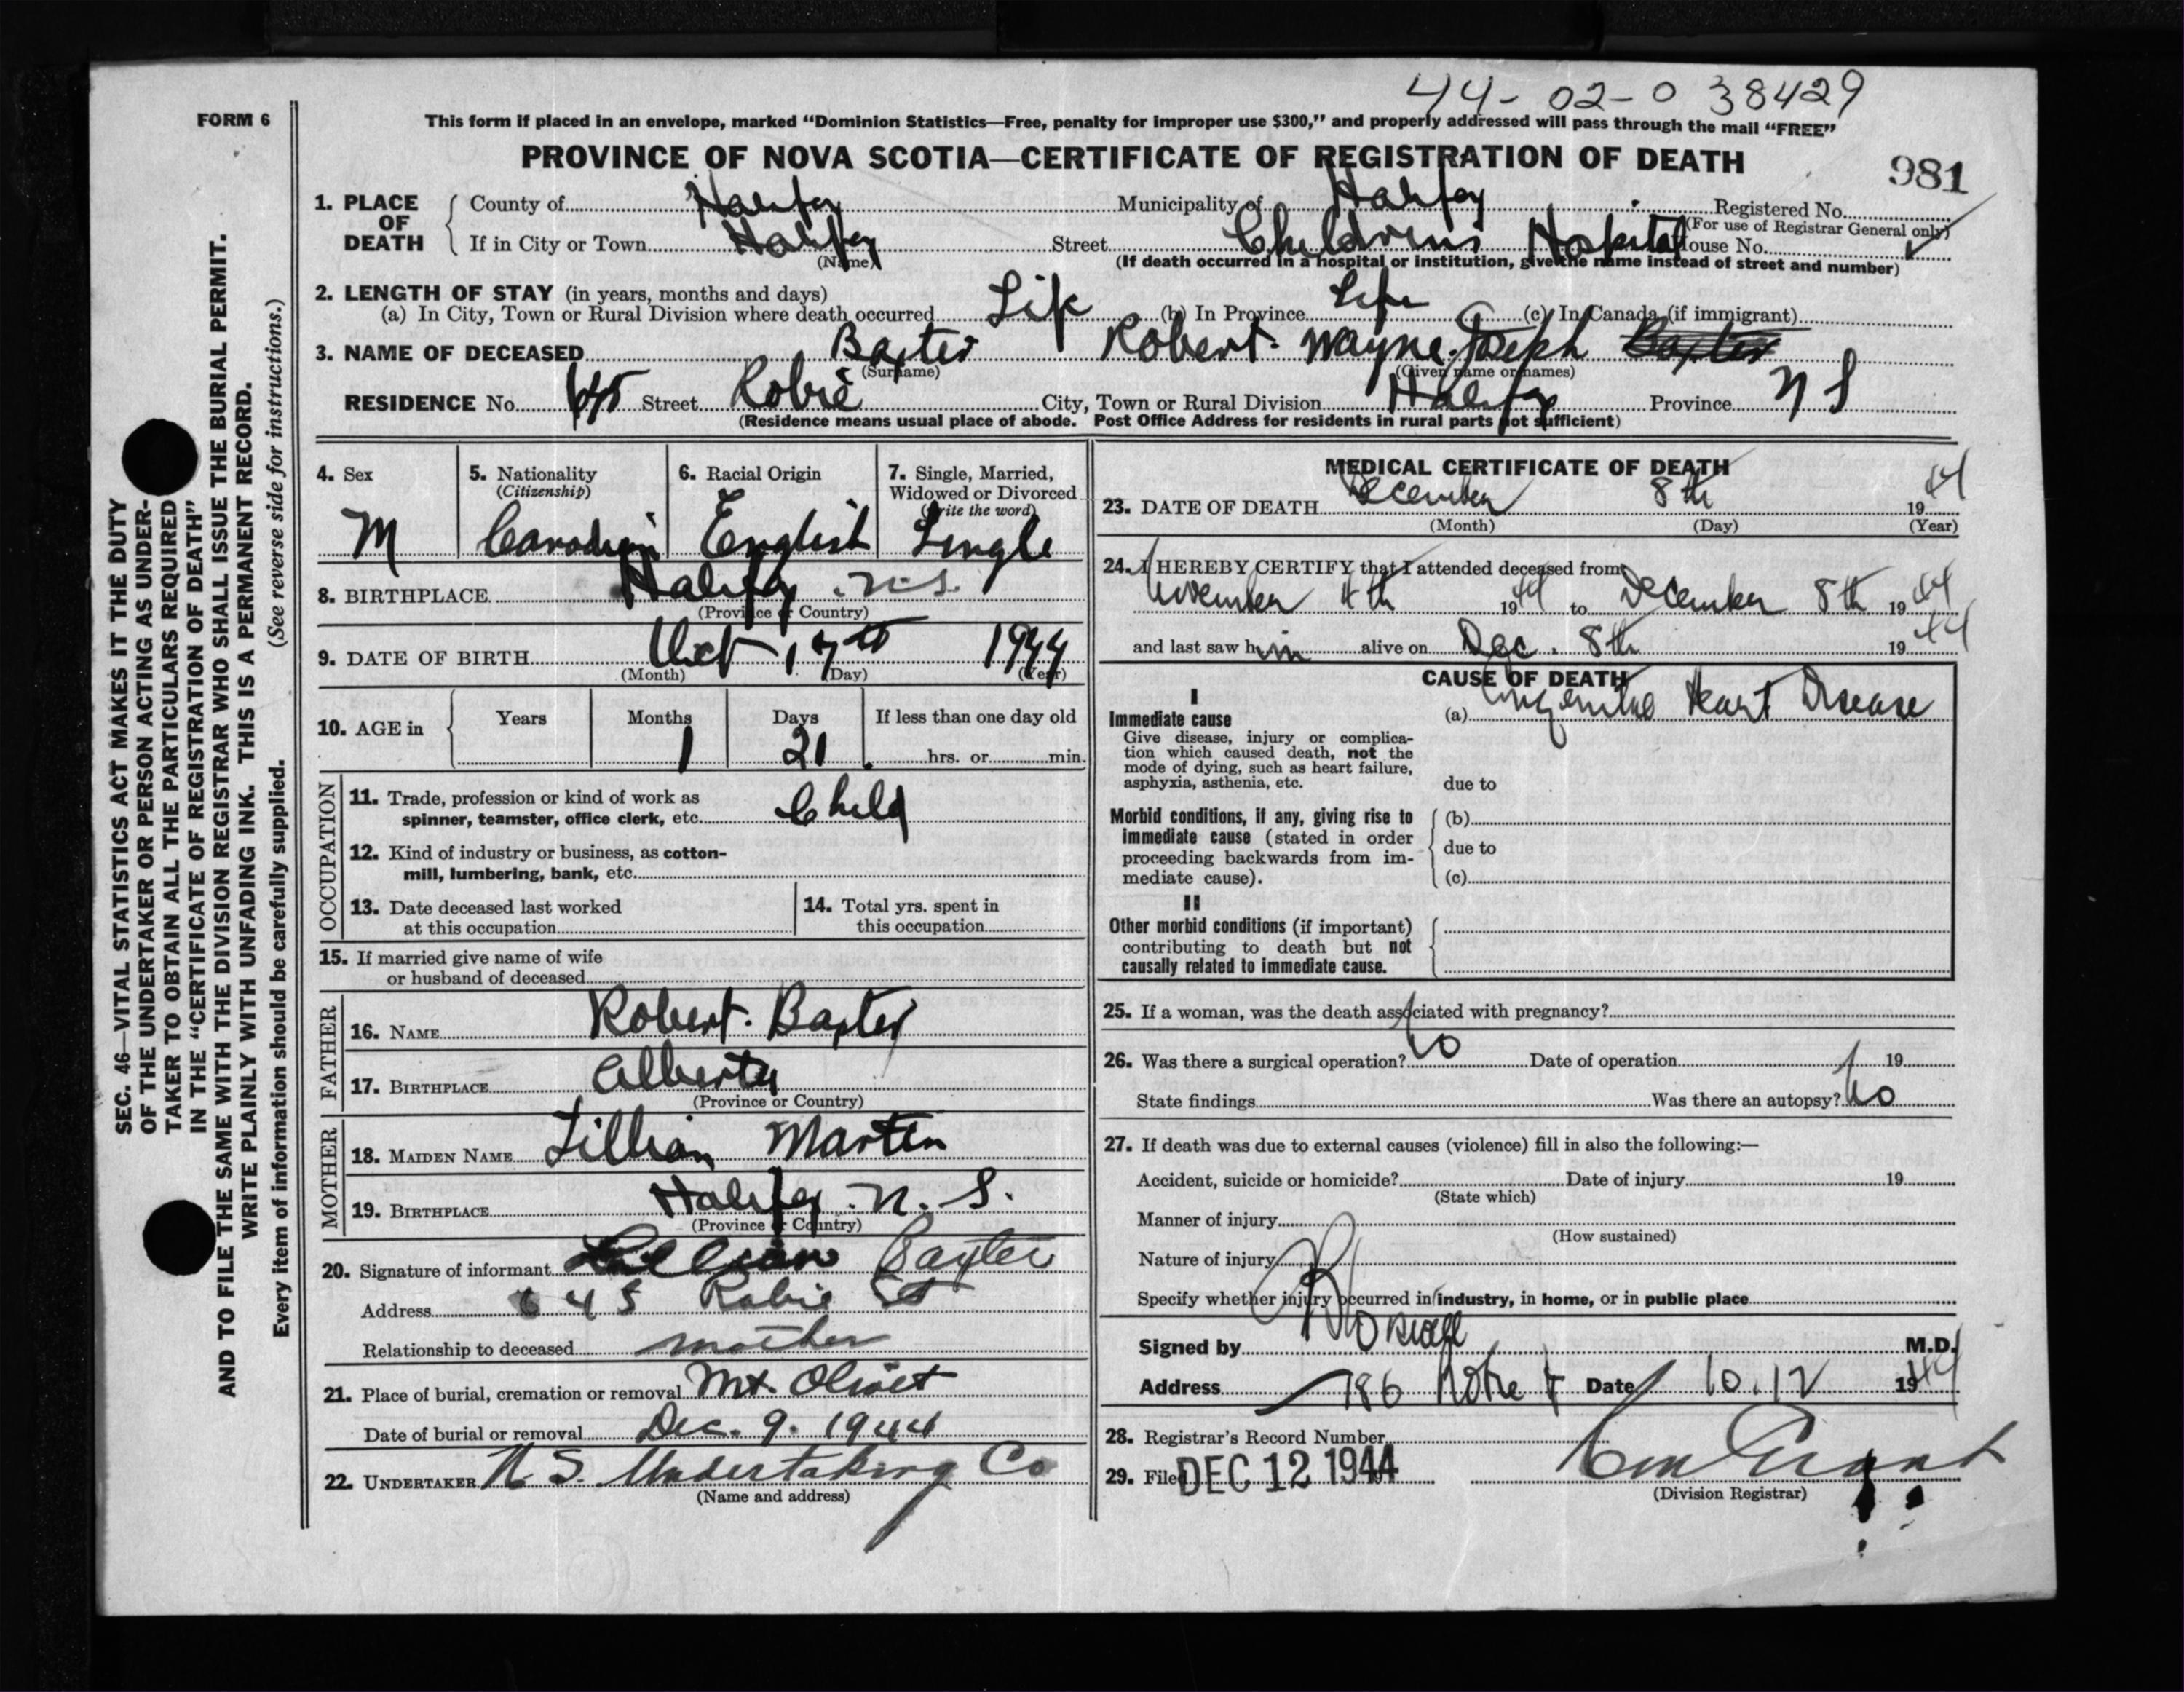 44-02-0 38429
FORM 6
This form if placed in an envelope, marked “Dominion Statistics—Free, penalty for improper use $300,” and properly addressed will pass through the mail “FREE”
PROVINCE OF NOVA SCOTIA—CERTIFICATE OF REGISTRATION OF DEATH
981
1. PLACE OF DEATH
County of Halifax Municipality of Halifax Registered No.
(For use of Registrar General only)
If in City or Town Halifax Street Childrens Hospital House No.
(Name) (If death occurred in a hospital or institution, give the name instead of street and number)
2. LENGTH OF STAY (in years, months and days)
(a) In City, Town or Rural Division where death occurred Life (b) In Province Life (c) In Canada (if immigrant)
3. NAME OF DECEASED Baxter Robert Wayne Joseph Baxter
(Surname) (Given name or names)
RESIDENCE No. 645 Street Robie City, Town or Rural Division Halifax Province N S
(Residence means usual place of abode. Post Office Address for residents in rural parts not sufficient)
4. Sex M
5. Nationality (Citizenship) Canadian
6. Racial Origin English
7. Single, Married, Widowed or Divorced (write the word) Single
8. BIRTHPLACE Halifax N.S.
(Province or Country)
9. DATE OF BIRTH Oct 17th 1944
(Month) (Day) (Year)
10. AGE in Years Months 1 Days 21 If less than one day old
hrs. or min.
OCCUPATION
11. Trade, profession or kind of work as
spinner, teamster, office clerk, etc. Child
12. Kind of industry or business, as cotton-
mill, lumbering, bank, etc.
13. Date deceased last worked
at this occupation
14. Total yrs. spent in
this occupation
15. If married give name of wife
or husband of deceased
FATHER
16. NAME Robert Baxter
17. BIRTHPLACE Alberta
(Province or Country)
MOTHER
18. MAIDEN NAME Lillian Martin
19. BIRTHPLACE Halifax N. S.
(Province or Country)
20. Signature of informant Lillian Baxter
Address 645 Robie St
Relationship to deceased mother
21. Place of burial, cremation or removal Mt. Olivet
Date of burial or removal Dec. 9. 1944
22. UNDERTAKER N.S. Undertaking Co
(Name and address)
MEDICAL CERTIFICATE OF DEATH
23. DATE OF DEATH December 8th 1944
(Month) (Day) (Year)
24. I HEREBY CERTIFY that I attended deceased from
November 4th 1944 to December 8th 1944
and last saw him alive on Dec. 8th 1944
CAUSE OF DEATH
I
Immediate cause (a) Congenital Heart Disease
Give disease, injury or complica-
tion which caused death, not the
mode of dying, such as heart failure,
asphyxia, asthenia, etc. due to
Morbid conditions, if any, giving rise to (b)
immediate cause (stated in order
proceeding backwards from im- due to
mediate cause). (c)
II
Other morbid conditions (if important)
contributing to death but not
causally related to immediate cause.
25. If a woman, was the death associated with pregnancy?
26. Was there a surgical operation? No Date of operation 19
State findings Was there an autopsy? No
27. If death was due to external causes (violence) fill in also the following:—
Accident, suicide or homicide? Date of injury 19
(State which)
Manner of injury
(How sustained)
Nature of injury
Specify whether injury occurred in industry, in home, or in public place
Signed by M.D.
Address 186 Date 10.12 1944
28. Registrar's Record Number
29. Filed DEC 12 1944
(Division Registrar)
SEC. 46—VITAL STATISTICS ACT MAKES IT THE DUTY
OF THE UNDERTAKER OR PERSON ACTING AS UNDER-
TAKER TO OBTAIN ALL THE PARTICULARS REQUIRED
IN THE “CERTIFICATE OF REGISTRATION OF DEATH”
AND TO FILE THE SAME WITH THE DIVISION REGISTRAR WHO SHALL ISSUE THE BURIAL PERMIT.
WRITE PLAINLY WITH UNFADING INK. THIS IS A PERMANENT RECORD.
Every item of information should be carefully supplied. (See reverse side for instructions.)